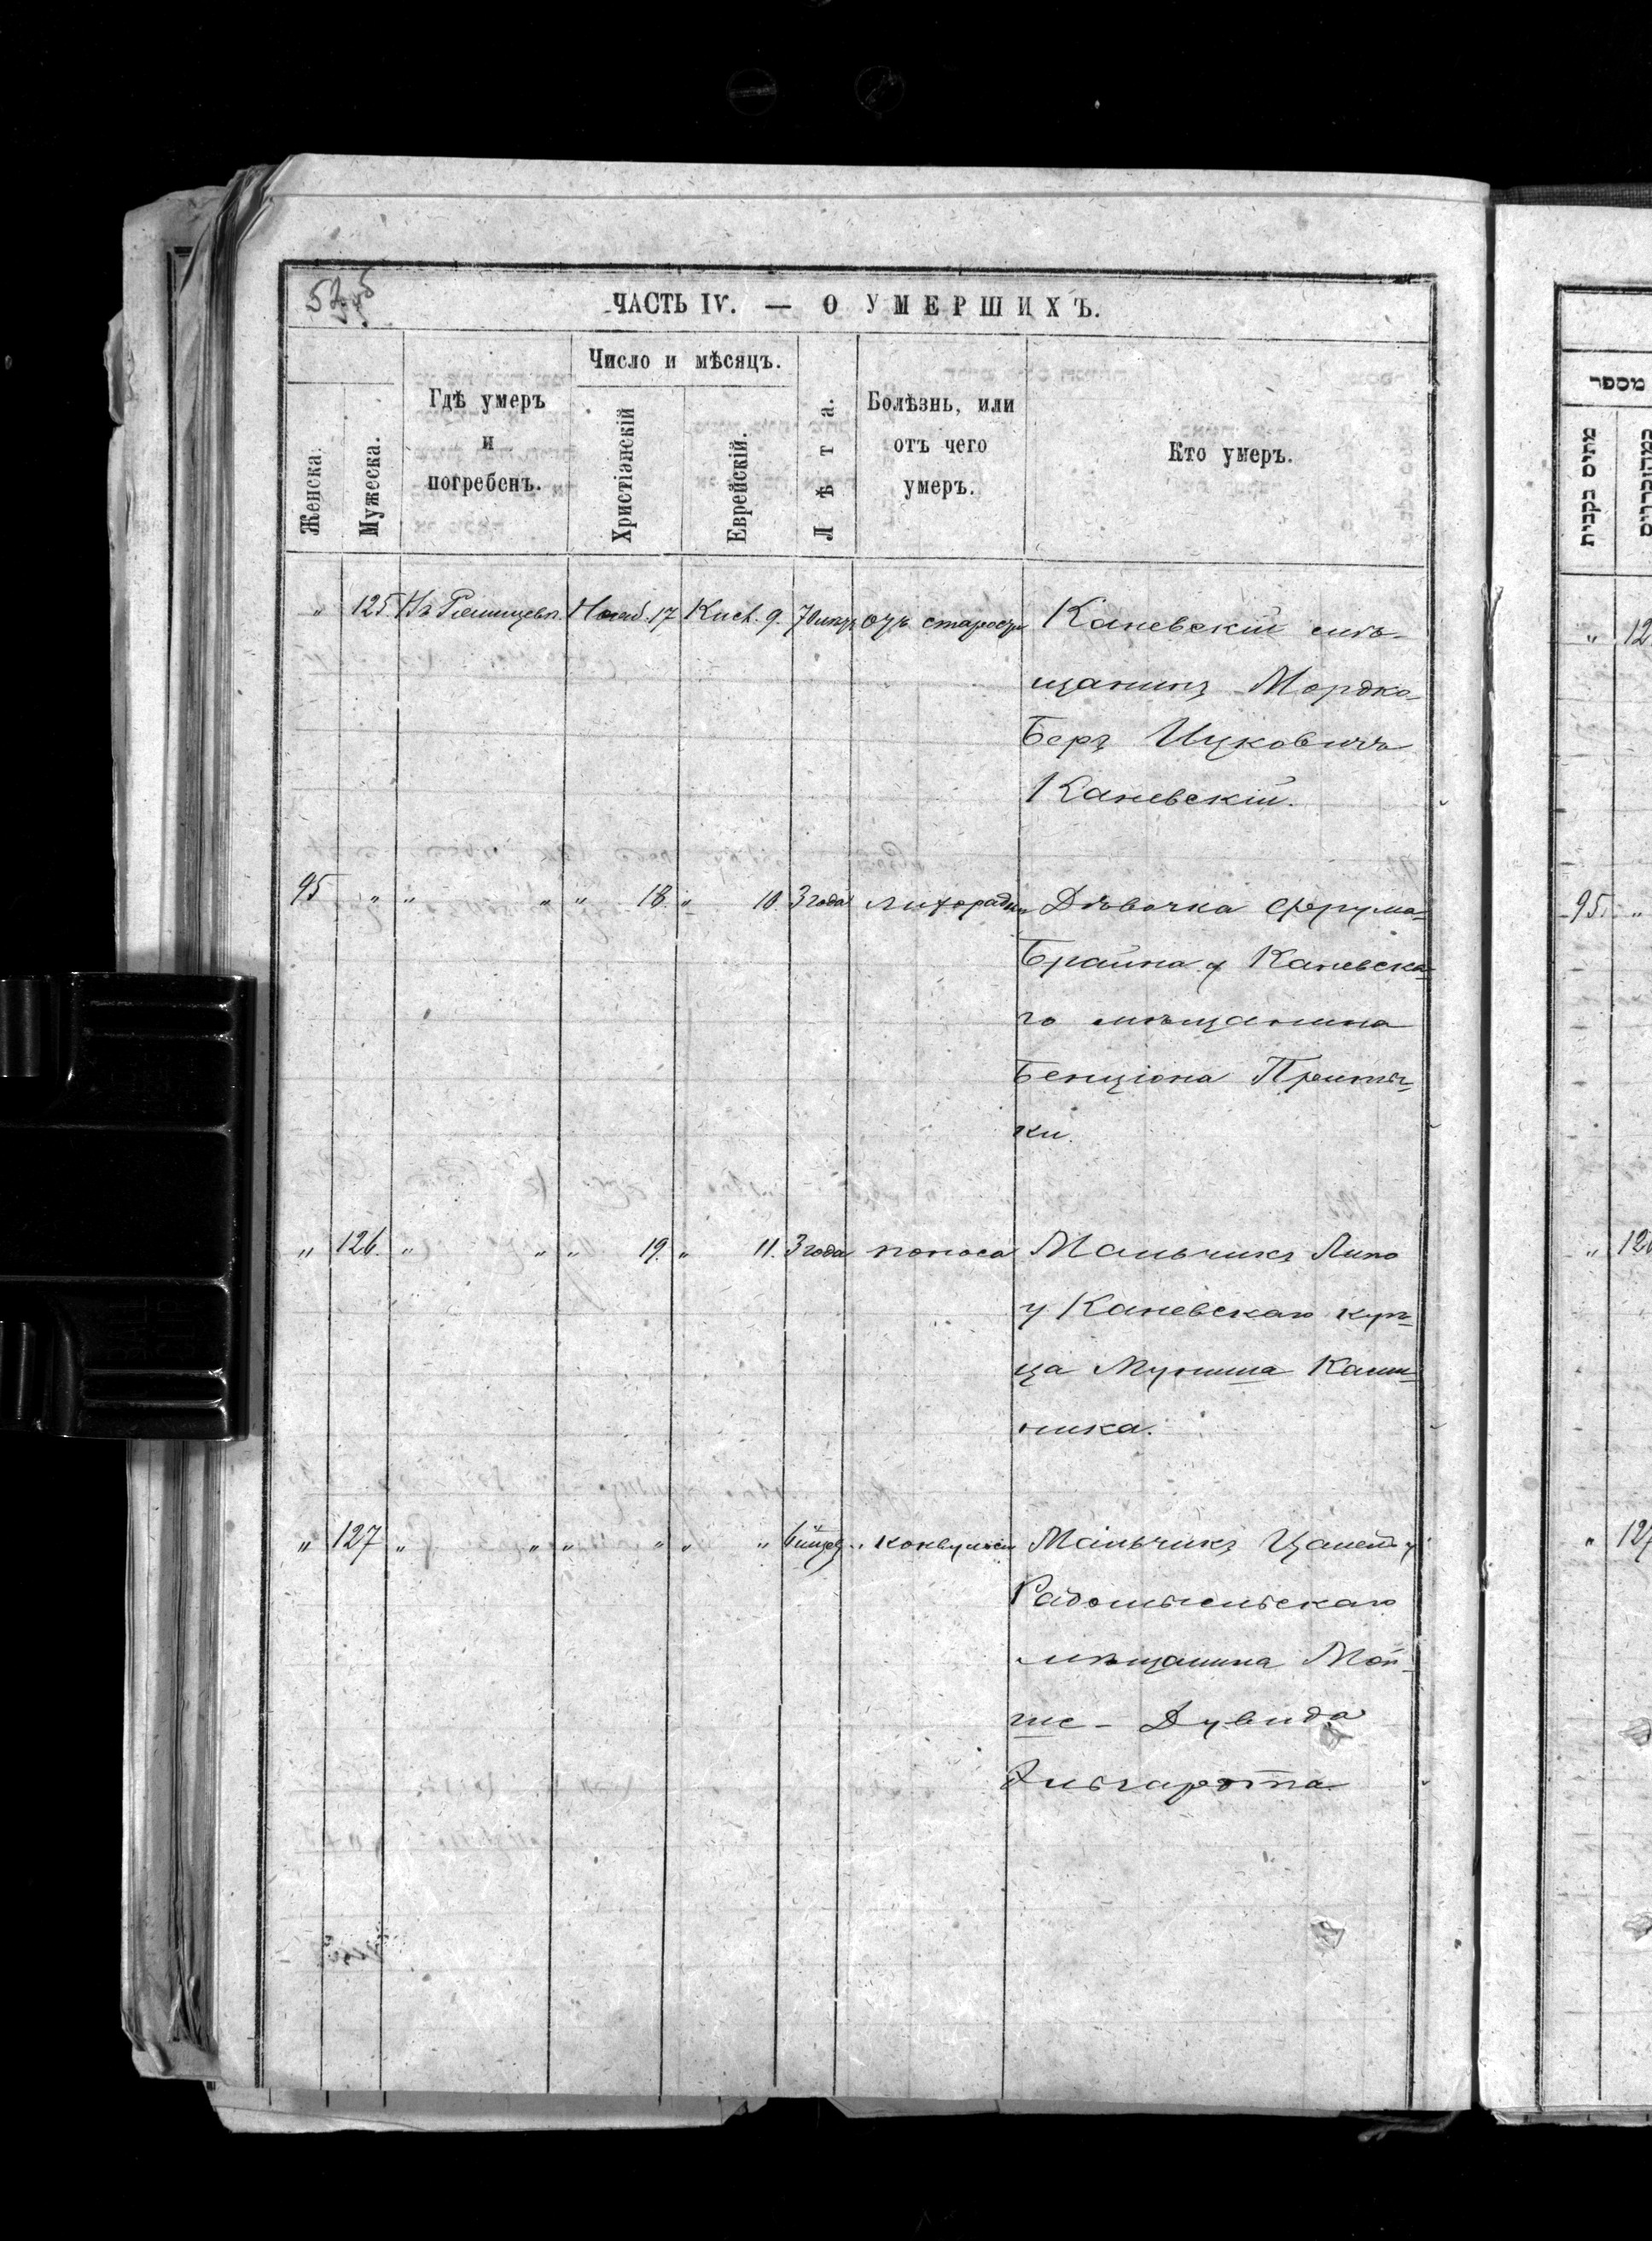 ЧАСТЬ IV. — О УМЕРШИХЪ.
Женска.
Мужеска.
Гдѣ умеръ
и
погребенъ.
Число и мѣсяцъ.
Христіанскій
Еврейскій.
Лѣта.
Болѣзнь, или
отъ чего
умеръ.
Кто умеръ.
" 125 Нояб. 17 Кисл. 9. 70 лѣтъ отъ старости Каневскій мѣ-
щанинъ Мордко-
Беръ Ицковичъ
Каневскій.
95 " " " " 18. " 10. 3 года лихорадки Дѣвочка Фрума-
Брайна у Каневска-
го мѣщанина
Бенціона Притыч-
ки.
" 126. " " " 19. " 11. 3 года поноса Мальчикъ Липо
у Каневскаго куп-
ца Муниша
ника.
" 127 " " " " " " конвульсіи Мальчикъ у
Радомысльскаго
мѣщанина Мой-
ше-Дувида
מספר
מתים בקבית
" 12
95. "
" 126
" 127